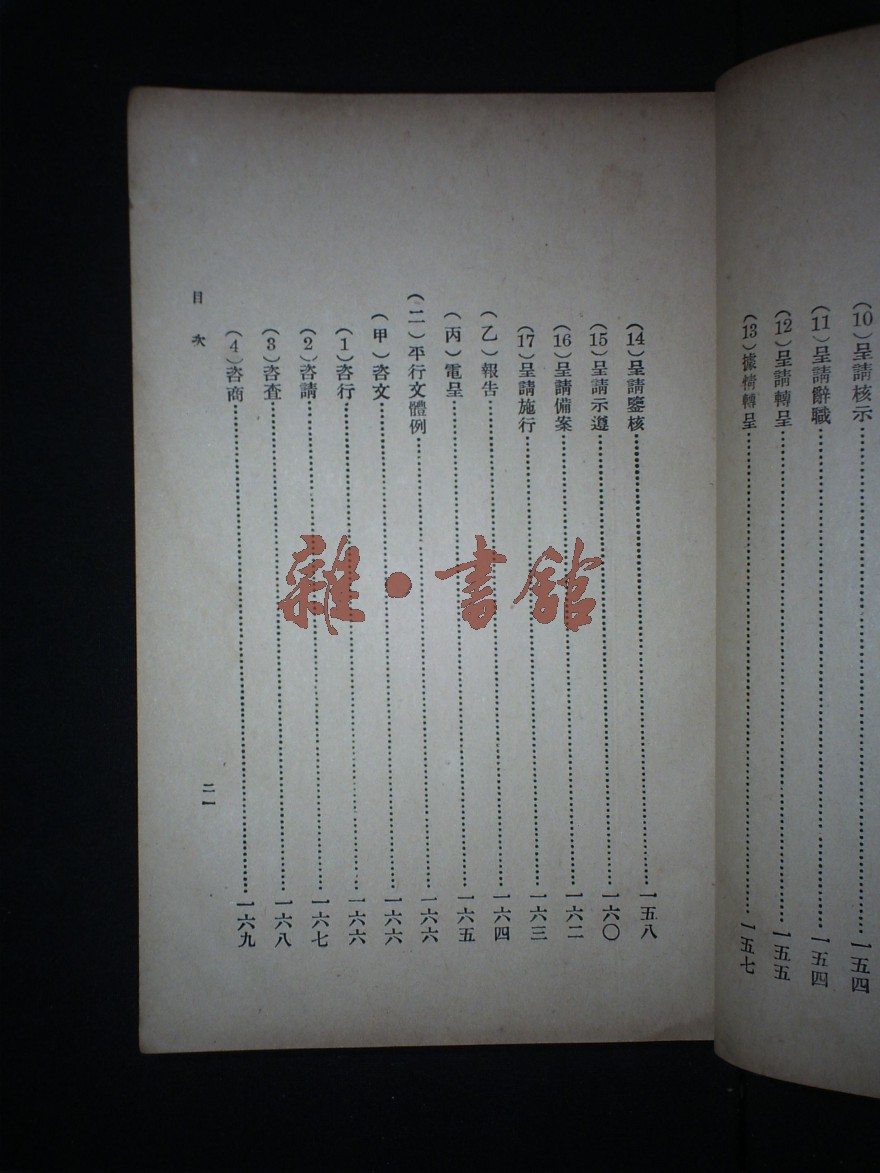 (10)呈請核示……一五四
(11)呈請辭職……一五四
(12)呈請轉呈……一五五
(13)據情轉呈……一五七
(14)呈請鑒核……一五八
(15)呈請示遵……一六〇
(16)呈請備案……一六二
(17)呈請施行……一六三
(乙)報告……一六四
(丙)電呈……一六五
(二)平行文體例……一六六
(甲)咨文……一六六
(1)咨行……一六六
(2)咨請……一六七
(3)咨查……一六八
(4)咨商……一六九
目次
二一
雜·書館